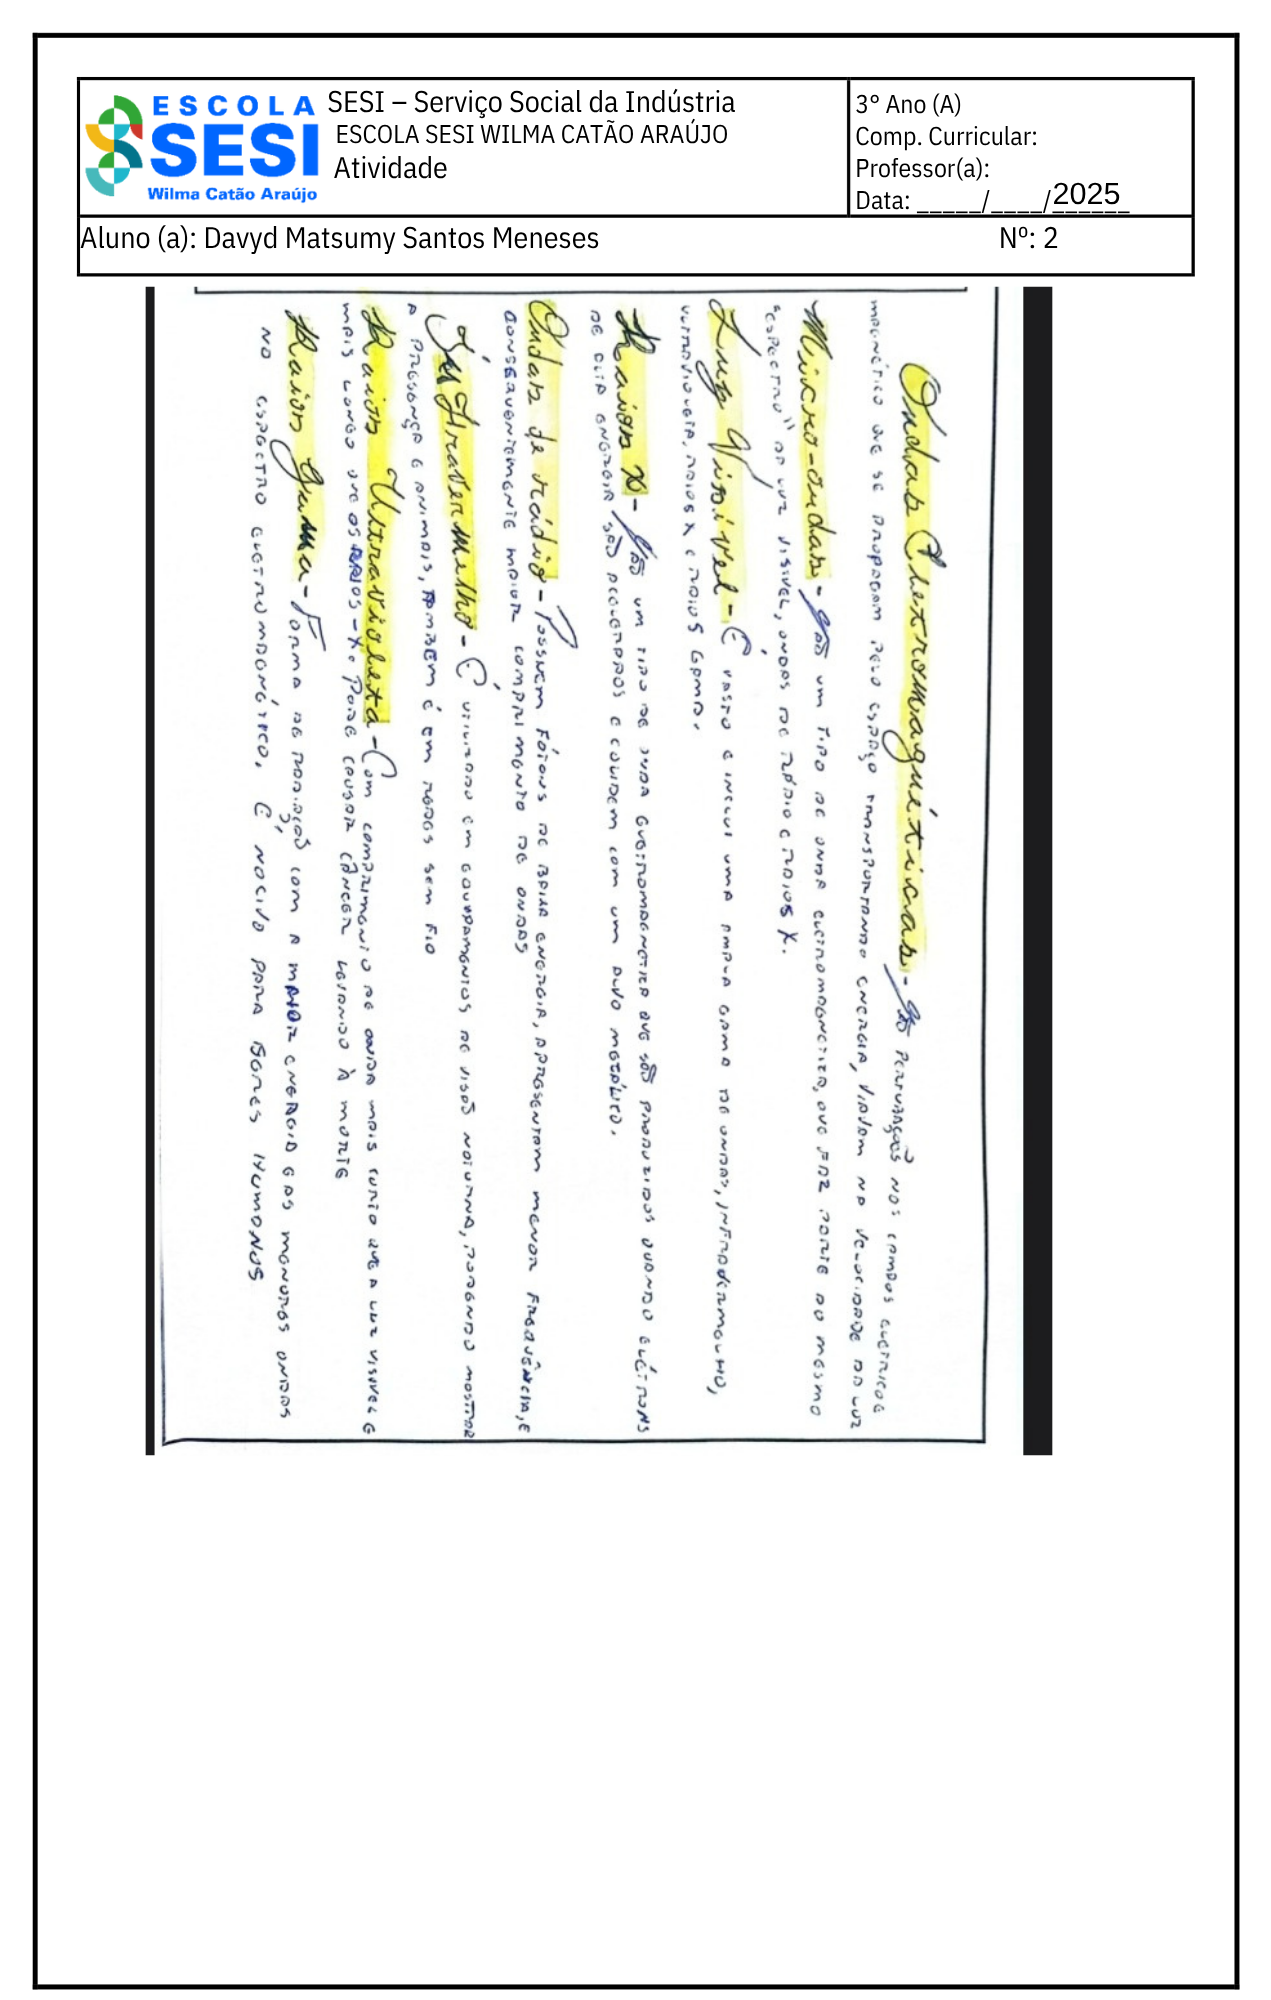 ESCOLA
SESI
Wilma Catão Araújo
SESI – Serviço Social da Indústria
ESCOLA SESI WILMA CATÃO ARAÚJO
Atividade
3° Ano (A)
Comp. Curricular:
Professor(a):
Data: _____/____/2025
Aluno (a): Davyd Matsumy Santos Meneses Nº: 2
Ondas Eletromagnéticas - São perturbações nos campos elétricos e
magnético que se propagam pelo espaço transportando energia, viajam na velocidade da luz
Micro-ondas - São um tipo de onda eletromagnetica, que faz parte do mesmo
"espectro" da luz visivel, ondas de rádio e raios X.
Luz Visivel - É vasto e inclui uma ampla gama de ondas, infravermelho,
ultravioleta, raios X e raios gama.
Raios X - São um tipo de onda eletromagnetica que são produzidos quando elétrons
de alta energia são acelerados e colidem com um alvo metálico.
Ondas de rádio - Possuem fótons de baixa energia, apresentam menor frequência, e
consequentemente maior comprimento de ondas
Infravermelho - É utilizado em equipamentos de visão noturna, podendo mostrar
a presença e animais, também é em redes sem fio
Raios Utravioleta - Com comprimento de onda mais curto que a luz visivel e
mais longo que os raios-X. Pode causar câncer levando à morte
Raios Gama - Forma de radiação com a maior energia e as menores ondas
no espectro eletromagnético. É nocivo para seres humanos